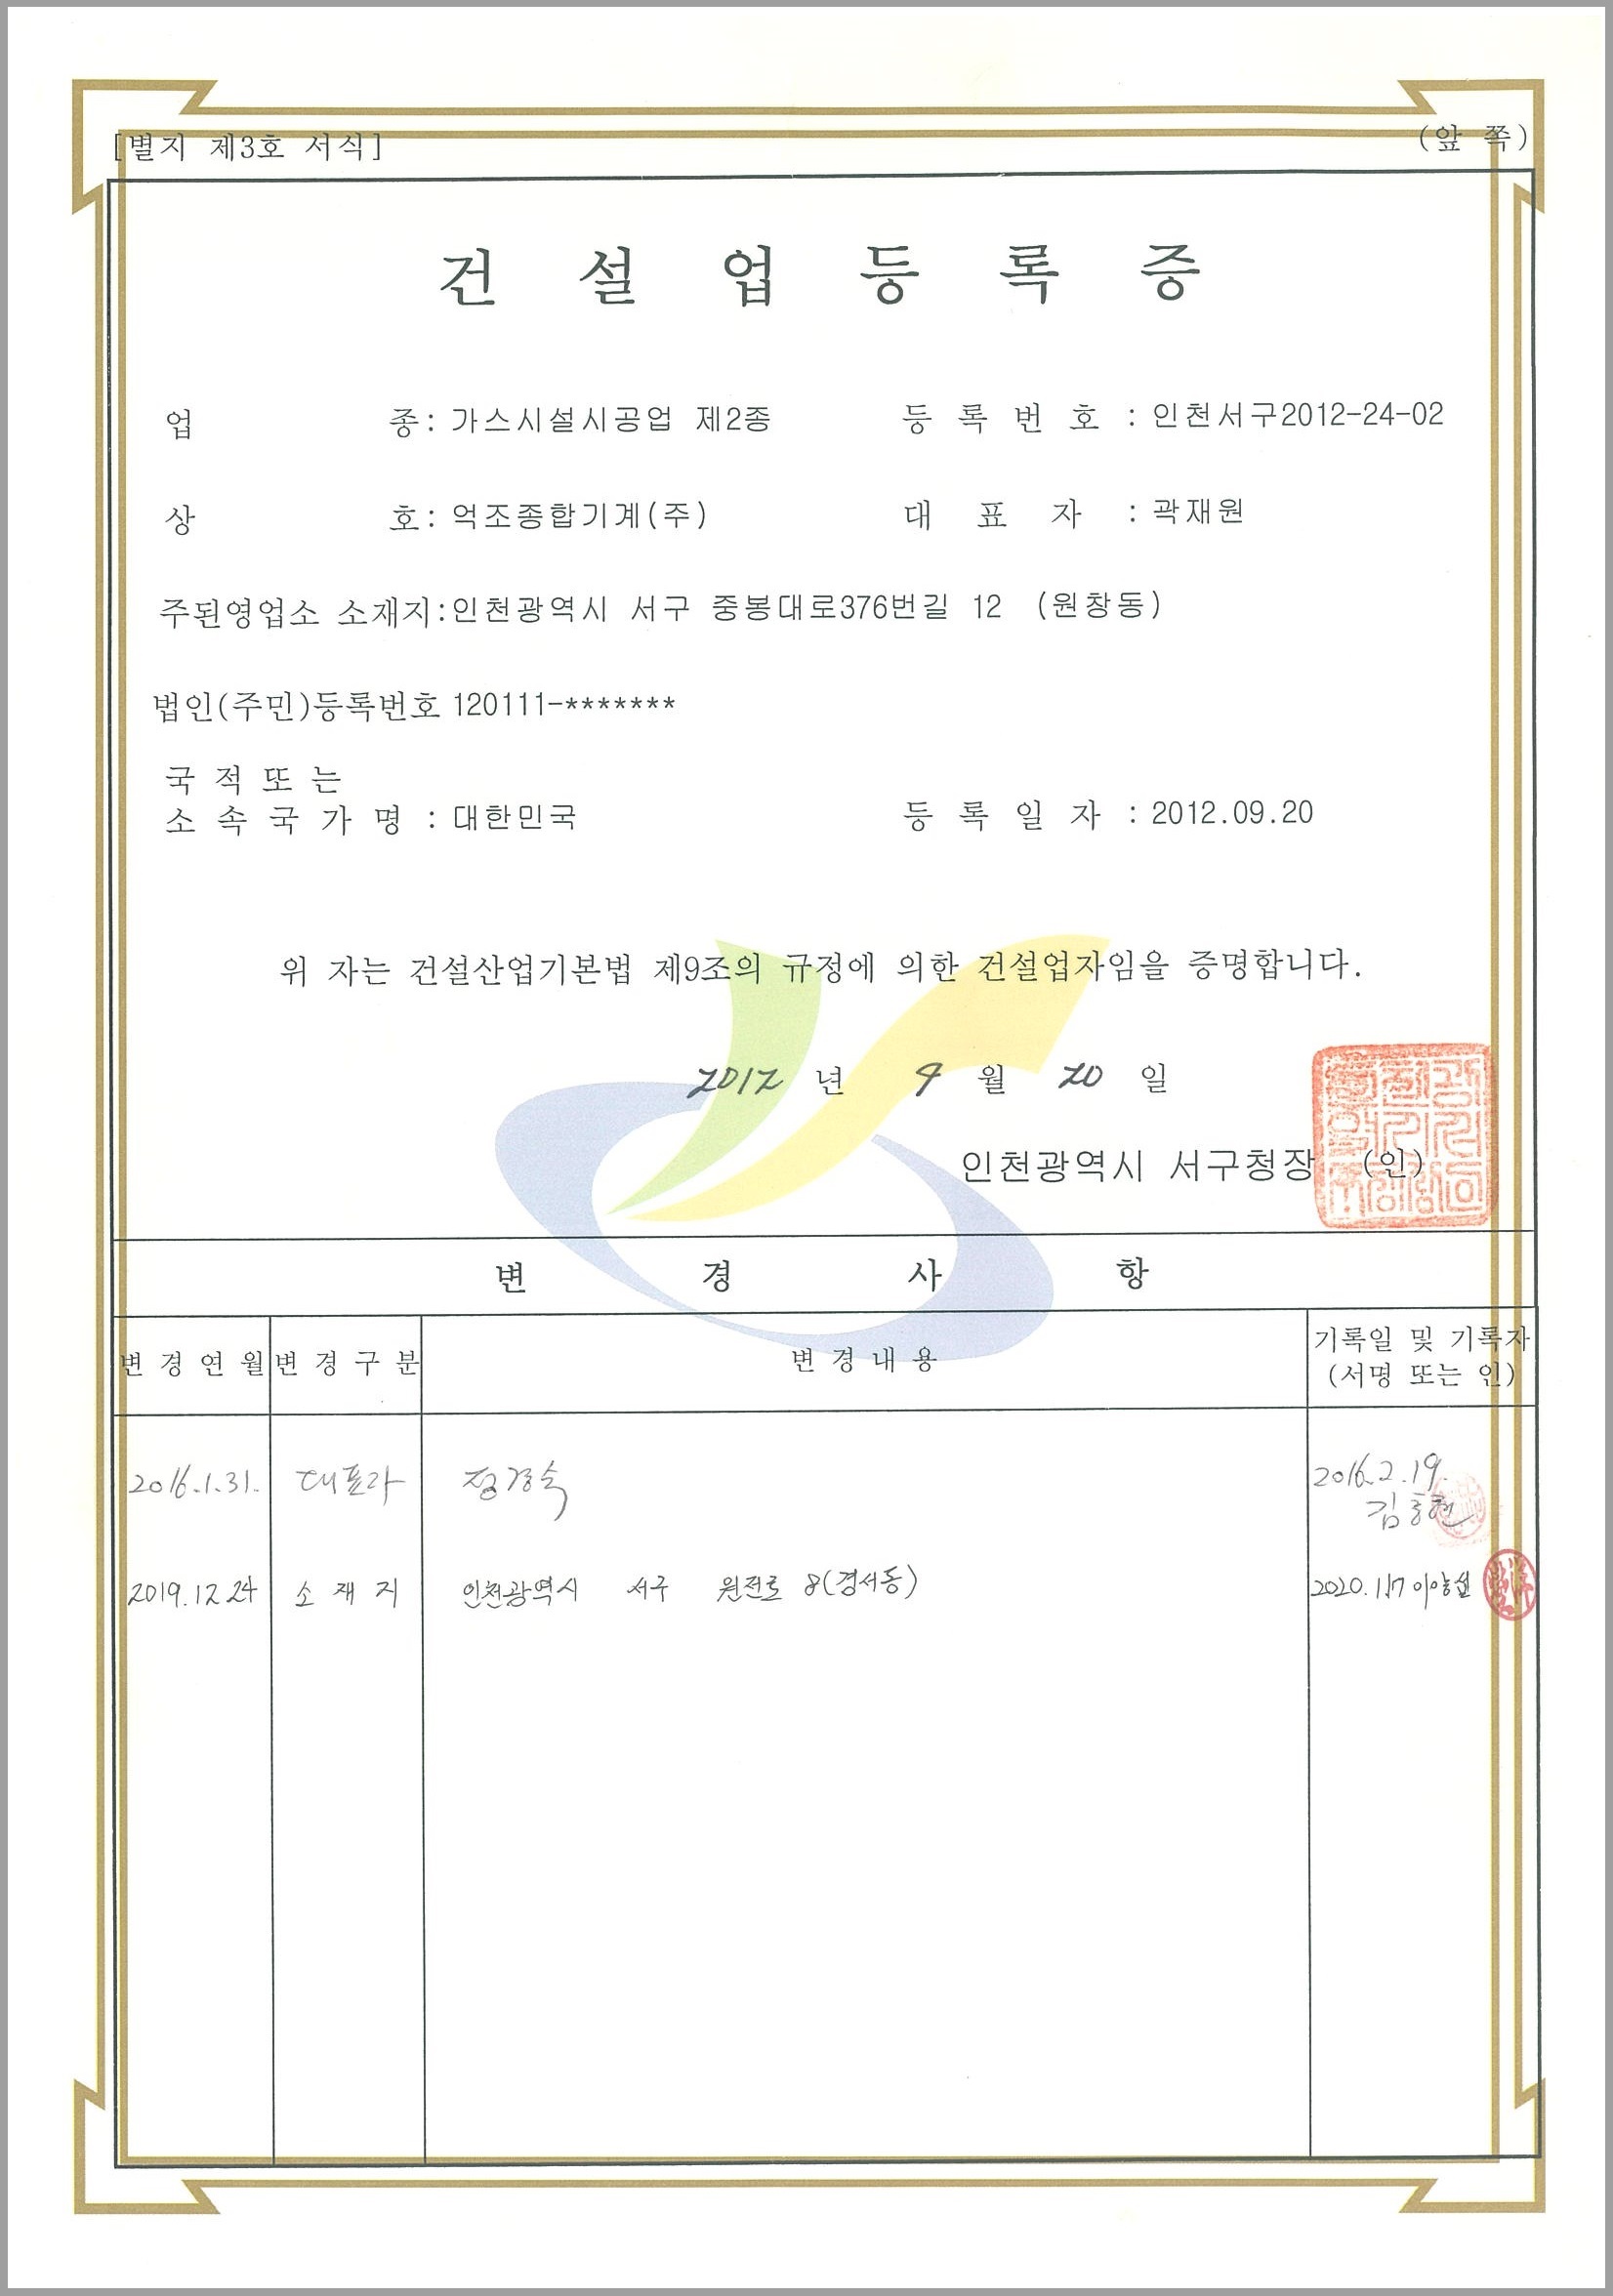 [별지 제3호 서식]
(앞 쪽)
건 설 업 등 록 증
업 종: 가스시설시공업 제2종 등 록 번 호 : 인천서구2012-24-02
상 호: 억조종합기계(주) 대 표 자 : 곽재원
주된영업소 소재지:인천광역시 서구 중봉대로376번길 12 (원창동)
법인(주민)등록번호 120111-*******
국 적 또 는
소 속 국 가 명 : 대한민국 등 록 일 자 : 2012.09.20
위 자는 건설산업기본법 제9조의 규정에 의한 건설업자임을 증명합니다.
2012 년 9 월 20 일
인천광역시 서구청장 (인)
변 경 사 항
변 경 연 월 변 경 구 분 변 경 내 용 기록일 및 기록자
(서명 또는 인)
2016.1.31. 대표자 정경숙 2016.2.19.
2019.12.24 소 재 지 인천광역시 서구 원전로 8(경서동) 2020.1.17